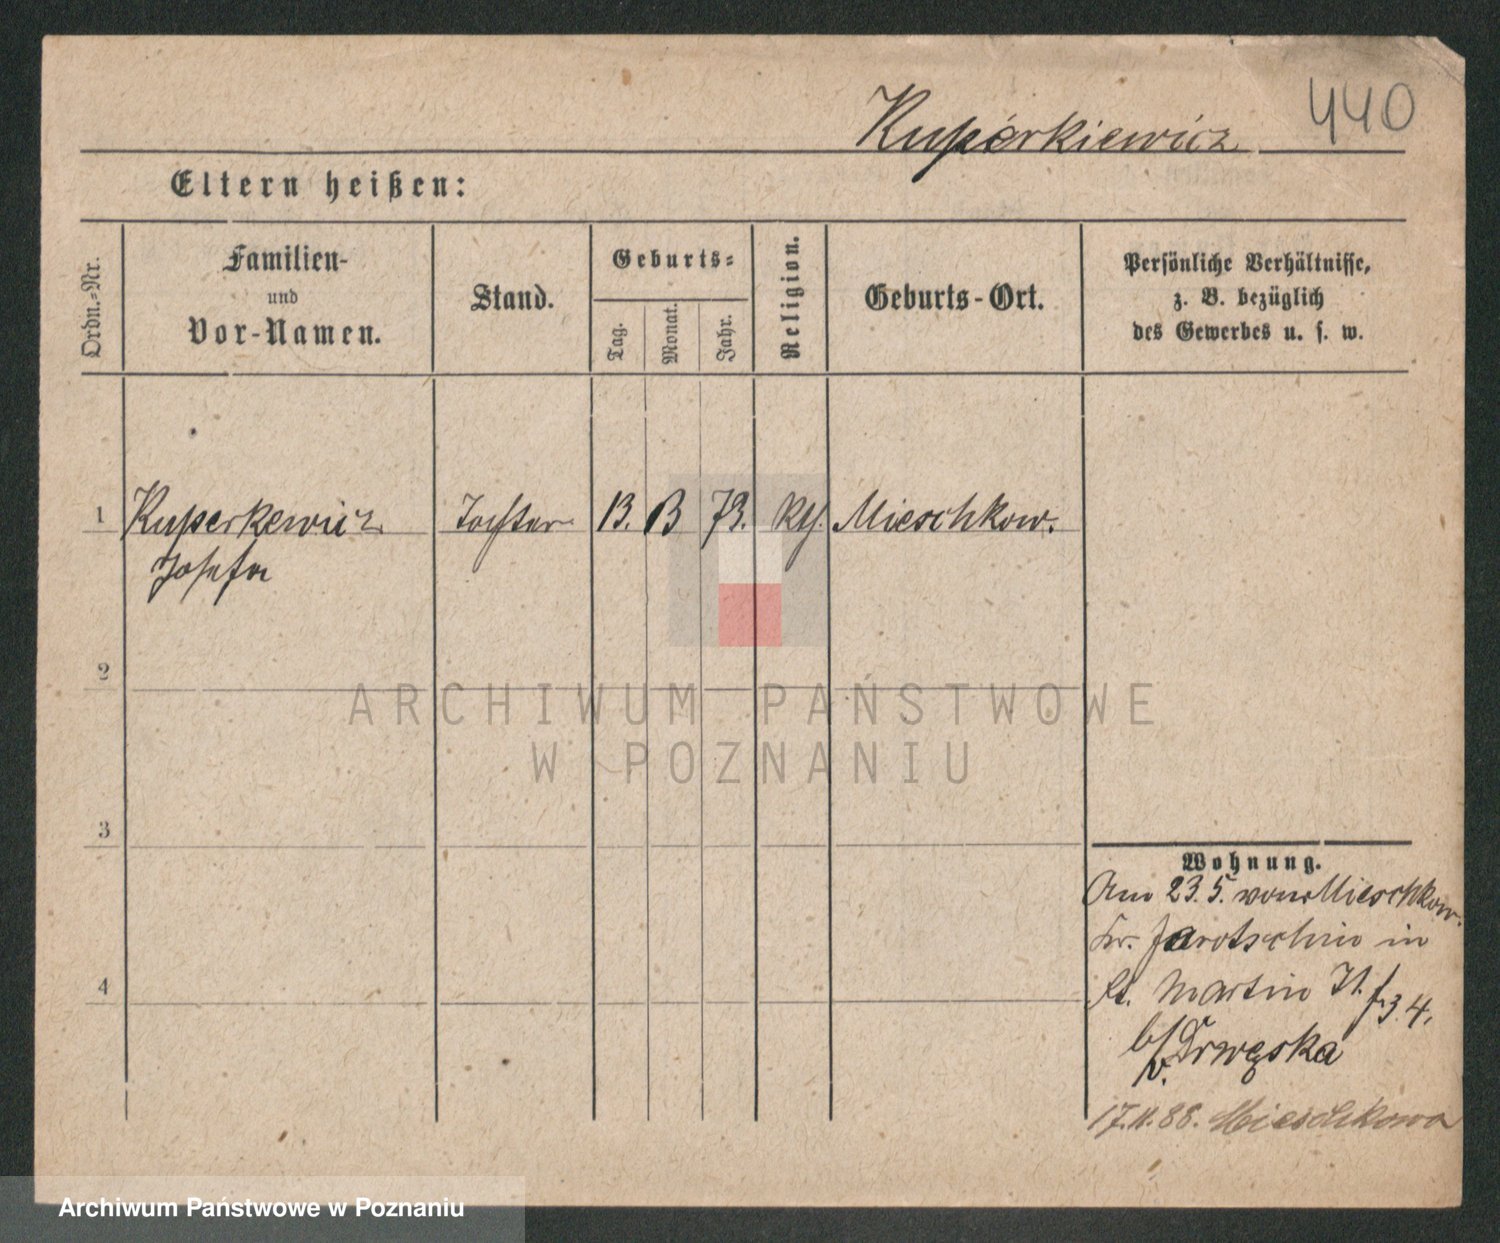 Kuperkiewicz 440
Eltern heißen:
Ordn.-Nr.
Familien-
und
Vor-Namen.
Stand.
Geburts-
Tag.
Monat.
Jahr.
Religion.
Geburts-Ort.
Persönliche Verhältnisse,
z. B. bezüglich
des Gewerbes u. s. w.
1 Kuperkewicz Tochter 13. 73. kth. Mieschkow.
Josefa
2
ARCHIWUM PAŃSTWOWE
W POZNANIU
3
Wohnung.
Am 23.5. von Mieschkow.
Kr. Jarotschin in
St. Martin 34.
b/ Drwęska
v.
17.11.88. Mieschkowo
4
Archiwum Państwowe w Poznaniu